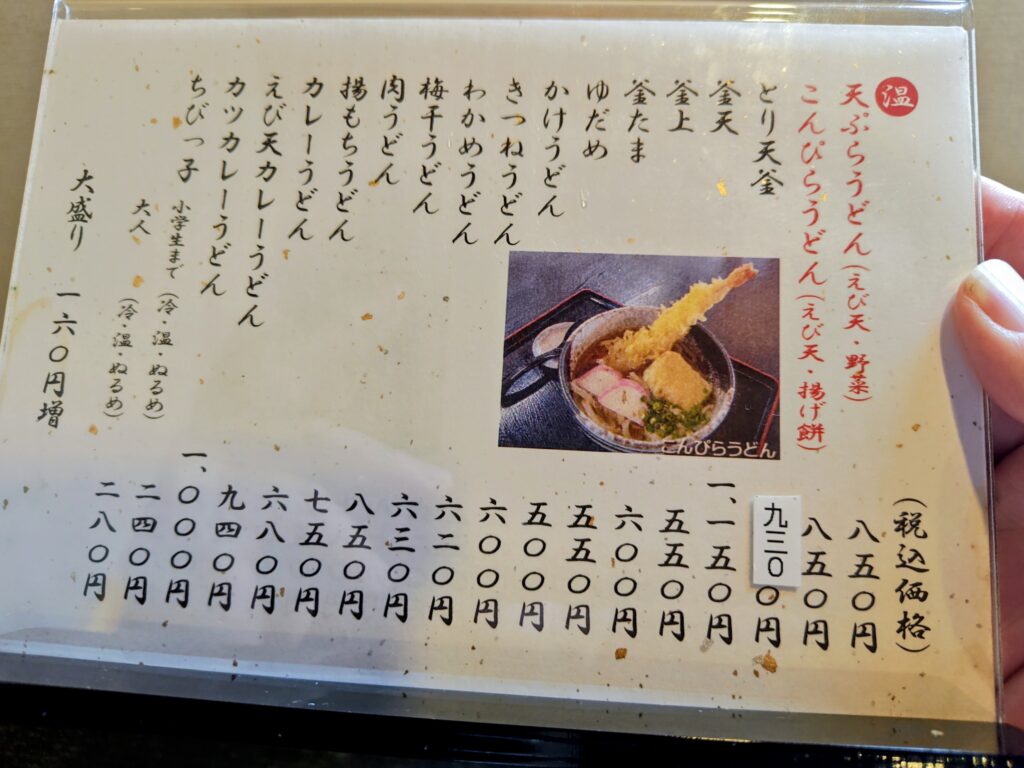 温
(税込価格)
天ぷらうどん(えび天・野菜) 八五〇円
こんぴらうどん(えび天・揚げ餅) 八五〇円
とり天釜 九三〇円
釜天 一、一五〇円
釜上 五五〇円
釜たま 六〇〇円
ゆだめ 五五〇円
かけうどん 五〇〇円
きつねうどん 六〇〇円
わかめうどん 六二〇円
梅干うどん 六三〇円
肉うどん 八五〇円
揚もちうどん 七五〇円
カレーうどん 六八〇円
えび天カレーうどん 九四〇円
カツカレーうどん 一、〇〇〇円
ちびっ子 小学生まで(冷・温・ぬるめ) 二四〇円
大人 (冷・温・ぬるめ) 二八〇円
大盛り 一六〇円増
こんぴらうどん